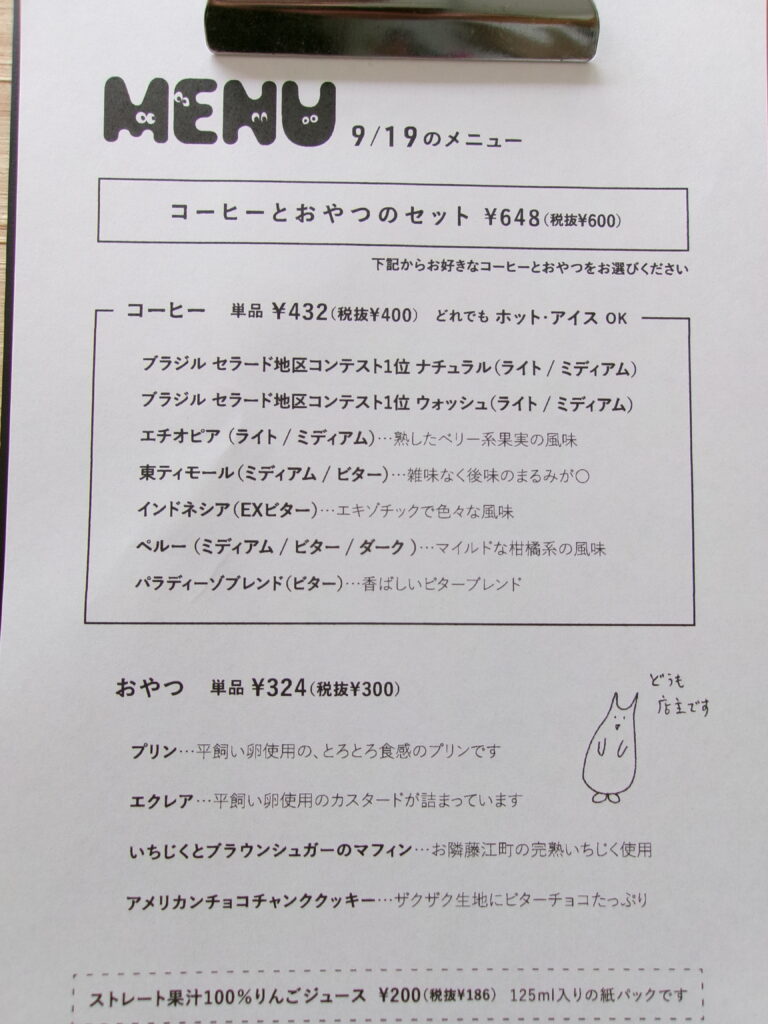 MENU 9/19のメニュー
コーヒーとおやつのセット ¥648(税抜¥600)
下記からお好きなコーヒーとおやつをお選びください
コーヒー 単品 ¥432(税抜¥400) どれでも ホット・アイス OK
ブラジル セラード地区コンテスト1位 ナチュラル(ライト / ミディアム)
ブラジル セラード地区コンテスト1位 ウォッシュ(ライト / ミディアム)
エチオピア (ライト / ミディアム)…熟したベリー系果実の風味
東ティモール(ミディアム / ビター)…雑味なく後味のまるみが〇
インドネシア(EXビター)…エキゾチックで色々な風味
ペルー (ミディアム / ビター / ダーク )…マイルドな柑橘系の風味
パラディーゾブレンド(ビター)…香ばしいビターブレンド
おやつ 単品 ¥324(税抜¥300)
どうも
店主です
プリン…平飼い卵使用の、とろとろ食感のプリンです
エクレア…平飼い卵使用のカスタードが詰まっています
いちじくとブラウンシュガーのマフィン…お隣藤江町の完熟いちじく使用
アメリカンチョコチャンククッキー…ザクザク生地にビターチョコたっぷり
ストレート果汁100%りんごジュース ¥200(税抜¥186) 125ml入りの紙パックです